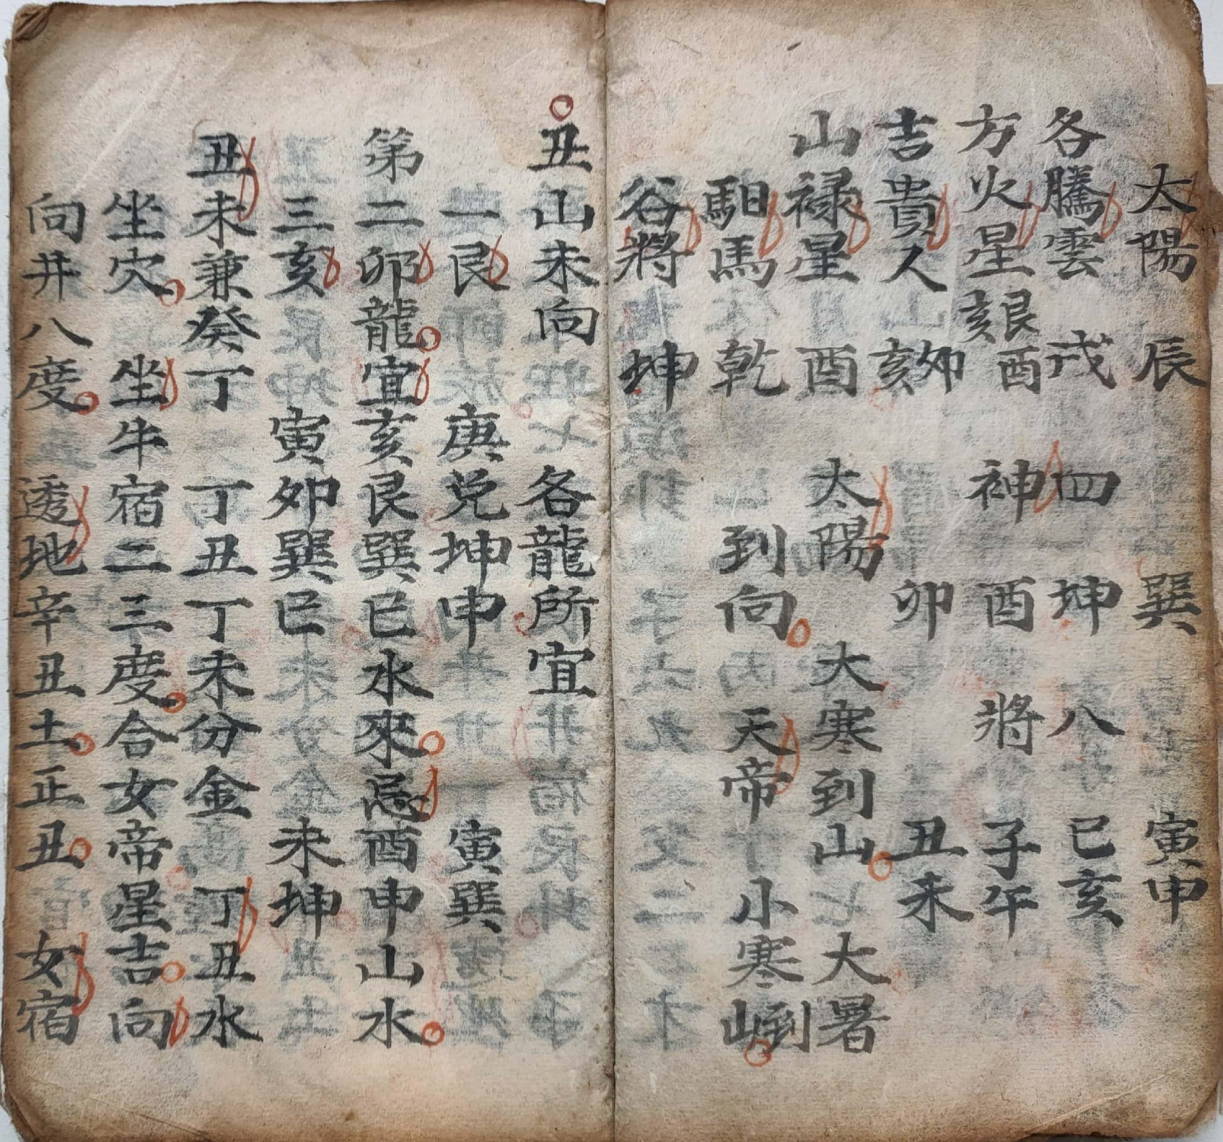 太陽 辰 巽 寅申
各騰雲 戌 四坤八 巳亥
方火星亥艮酉 神酉將 子午
吉貴人亥卯 卯 丑未
山禄星酉 太陽 大寒到山 大暑
馹馬乾 到向 天帝 小寒到山
谷將坤
丑山未向 各龍所宜
一艮 庚兑坤申 寅巽
第二卯龍宜亥艮巽巳水來忌酉申山水
三亥 寅卯巽巳 未坤
丑未兼癸丁 丁丑丁未分金 丁丑水
坐穴 坐牛宿二三度合女帝星吉向
向井八度 透地辛丑土正丑 女宿